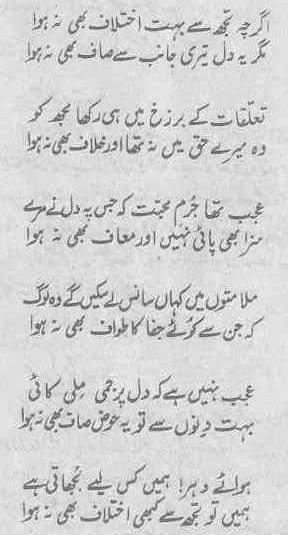 اگرچہ تجھ سے بہت اختلاف بھی نہ ہوا
مگر یہ دل تیری جانب سے صاف بھی نہ ہوا
تعلّقات کے برزخ میں ہی رکھا مجھ کو
وہ میرے حق میں نہ تھا اور خلاف بھی نہ ہوا
عجب تھا جُرم محبّت کہ جس پہ دل نے مرے
سزا بھی پائی نہیں اور معاف بھی نہ ہوا
ملامتوں میں کہاں سانس لے سکیں گے وہ لوگ
کہ جن سے کوئے جفا کا طواف بھی نہ ہوا
عجب نہیں ہے کہ دل پر جمی ملی کائی
بہت دنوں سے تو یہ حوض صاف بھی نہ ہوا
ہوائے دہر! ہمیں کس لیے بُجھاتی ہے
ہمیں تو تجھ سے کبھی اختلاف بھی نہ ہوا